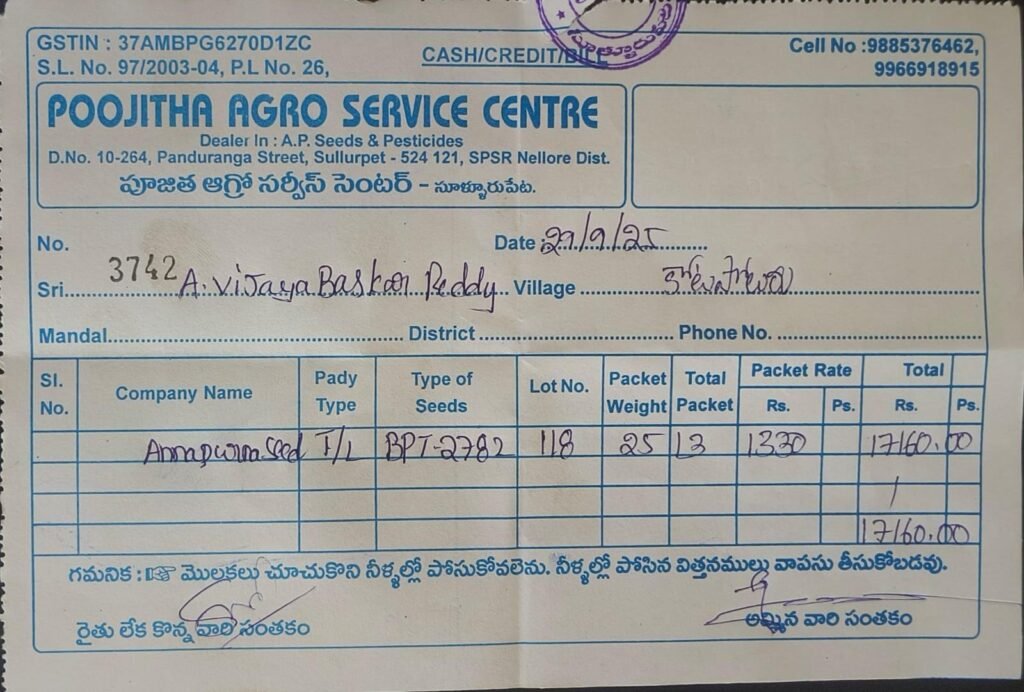 GSTIN : 37AMBPG6270D1ZC
S.L. No. 97/2003-04, P.L No. 26,
CASH/CREDIT/BILL
సూళ్ళూరుపేట
Cell No :9885376462,
9966918915
POOJITHA AGRO SERVICE CENTRE
Dealer In : A.P. Seeds & Pesticides
D.No. 10-264, Panduranga Street, Sullurpet - 524 121, SPSR Nellore Dist.
పూజిత ఆగ్రో సర్వీస్ సెంటర్ - సూళ్ళూరుపేట.
No. 3742 Date : 29/9/25
Sri. A. Vijaya Baskar Reddy Village
Mandal District Phone No.
Sl. No. Company Name Pady Type Type of Seeds Lot No. Packet Weight Total Packet Packet Rate Rs. Ps. Total Rs. Ps.
Annapurna Seed T/L BPT-2782 118 25 13 1320 17160.00
17160.00
గమనిక : మొలకలు చూచుకొని నీళ్ళల్లో పోసుకోవలెను. నీళ్ళల్లో పోసిన విత్తనములు వాపసు తీసుకోబడవు.
రైతు లేక కొన్న వారి సంతకం అమ్మిన వారి సంతకం